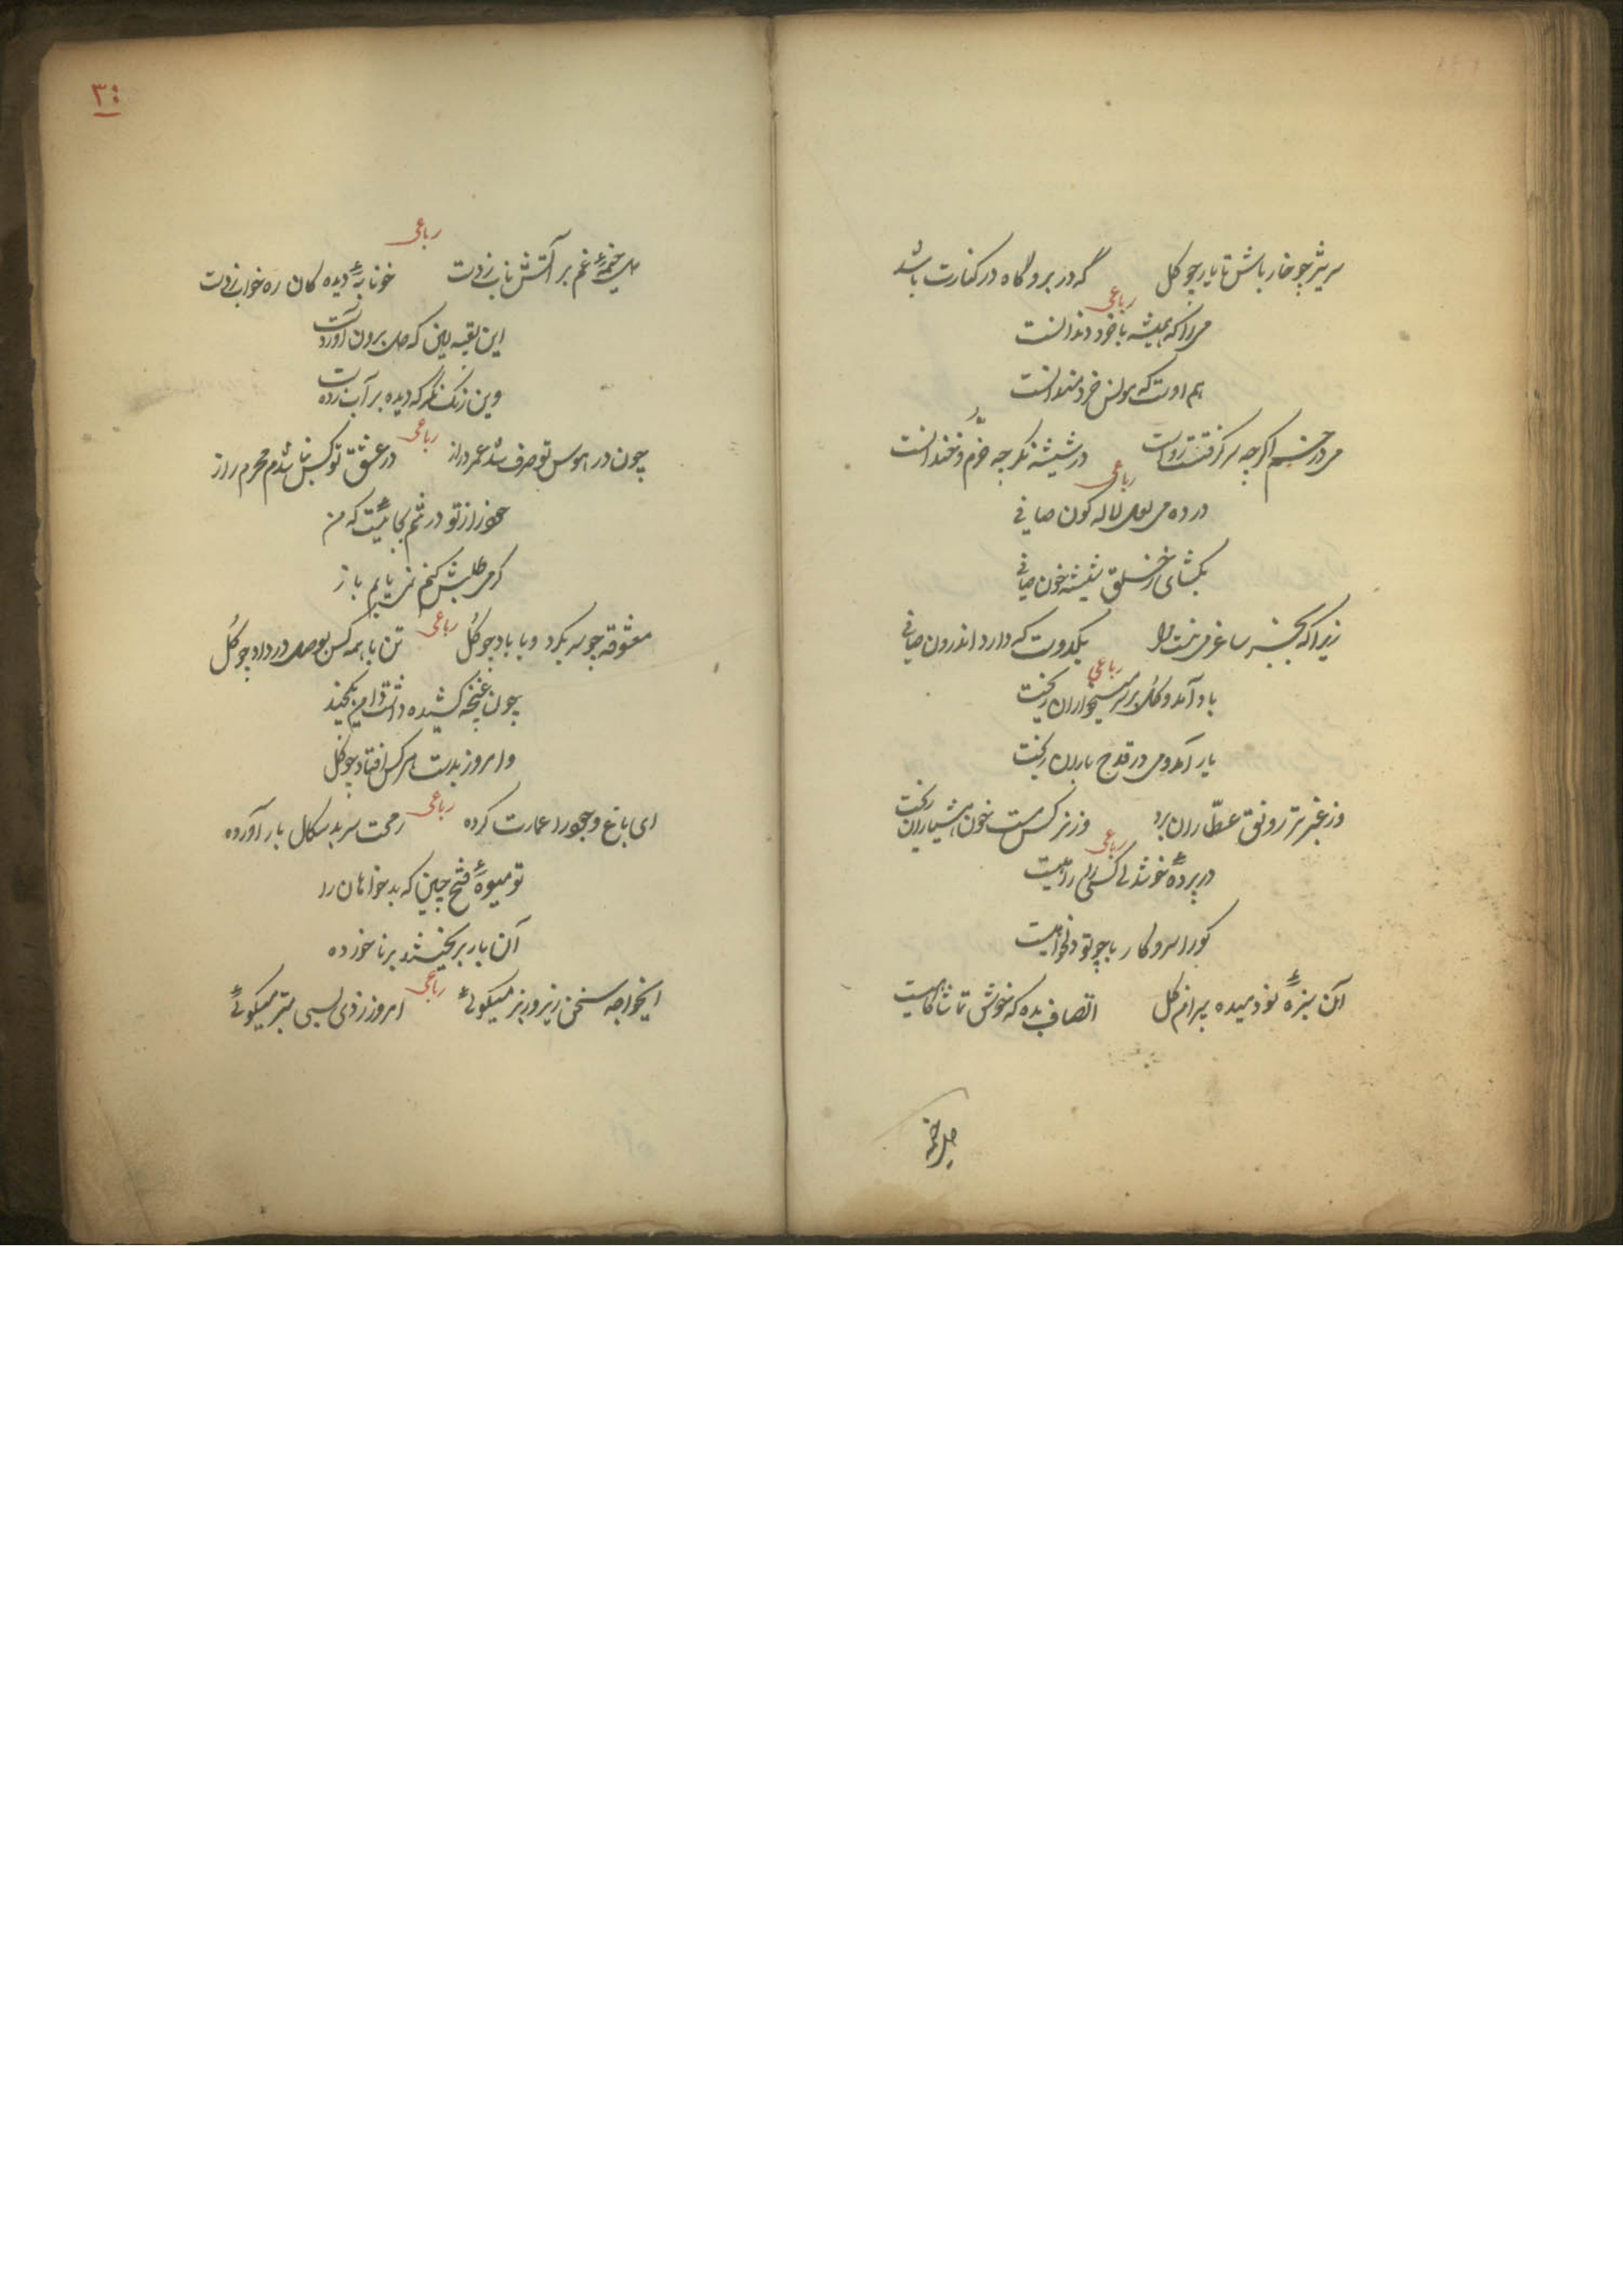 سرتیز چو خار باش تا یار چو کل
گه در بر و گاه در کنارت باشد
رباعی
می را که همیشه با خرد دندانست
هم اوست که مونس خردمندانست
می در خم اکرچه سرکرفتست رواست
در شیشه نکر چه خرم و خندانست
رباعی
در ده می لعل لاله کون صافی
بکشای ز حلق شیشه خون صافی
زیرا که بجز ساغر می نیست مرا
یکدوست که دارد اندرون صافی
رباعی
باد آمد و کل بر سر میخواران ریخت
یار آمد و می در قدح یاران ریخت
وز عنبر تر رونق عطاران برد
وز نرکس مست خون هشیاران ریخت
رباعی
در پردهٔ خوشدلی کسی را ره نیست
کورا سر و کار با چو تو دلخواهیست
آن سبزهٔ نو دمیده پیرامن کل
انصاف بده که خوش تماشاکاهیست
دل خیمه
رباعی
دل خیمهٔ غم بر آتش ناب زدست
خونابهٔ دیده کان ره خواب زدست
این تعبیه بین که دل برون آوردست
وین رنک نکر که دیده بر آب زدست
رباعی
چون در هوس تو صرف شد عمر دراز
در عشق تو کس نا شدم محرم راز
عمر از تو در غم بجائیست که من
کر می طلبش کنم نمی یابم باز
رباعی
معشوقه چو سر بکرد و با باد چو کل
تن با همه کس بوصل در داد چو کل
چون غنچه کشیده داشت دامن یکچند
و امروز بدست هر کس افتاد چو کل
رباعی
ای باغ وجود را عمارت کرده
رمحت سر بد سکال بار آورده
تو میوهٔ فتح چین که بدخواهان را
آن بار بریختند بر ناخورده
رباعی
ایخواجه سخن زیر و زبر میکوئی
امروز ز دی بسی بتر میکوئی